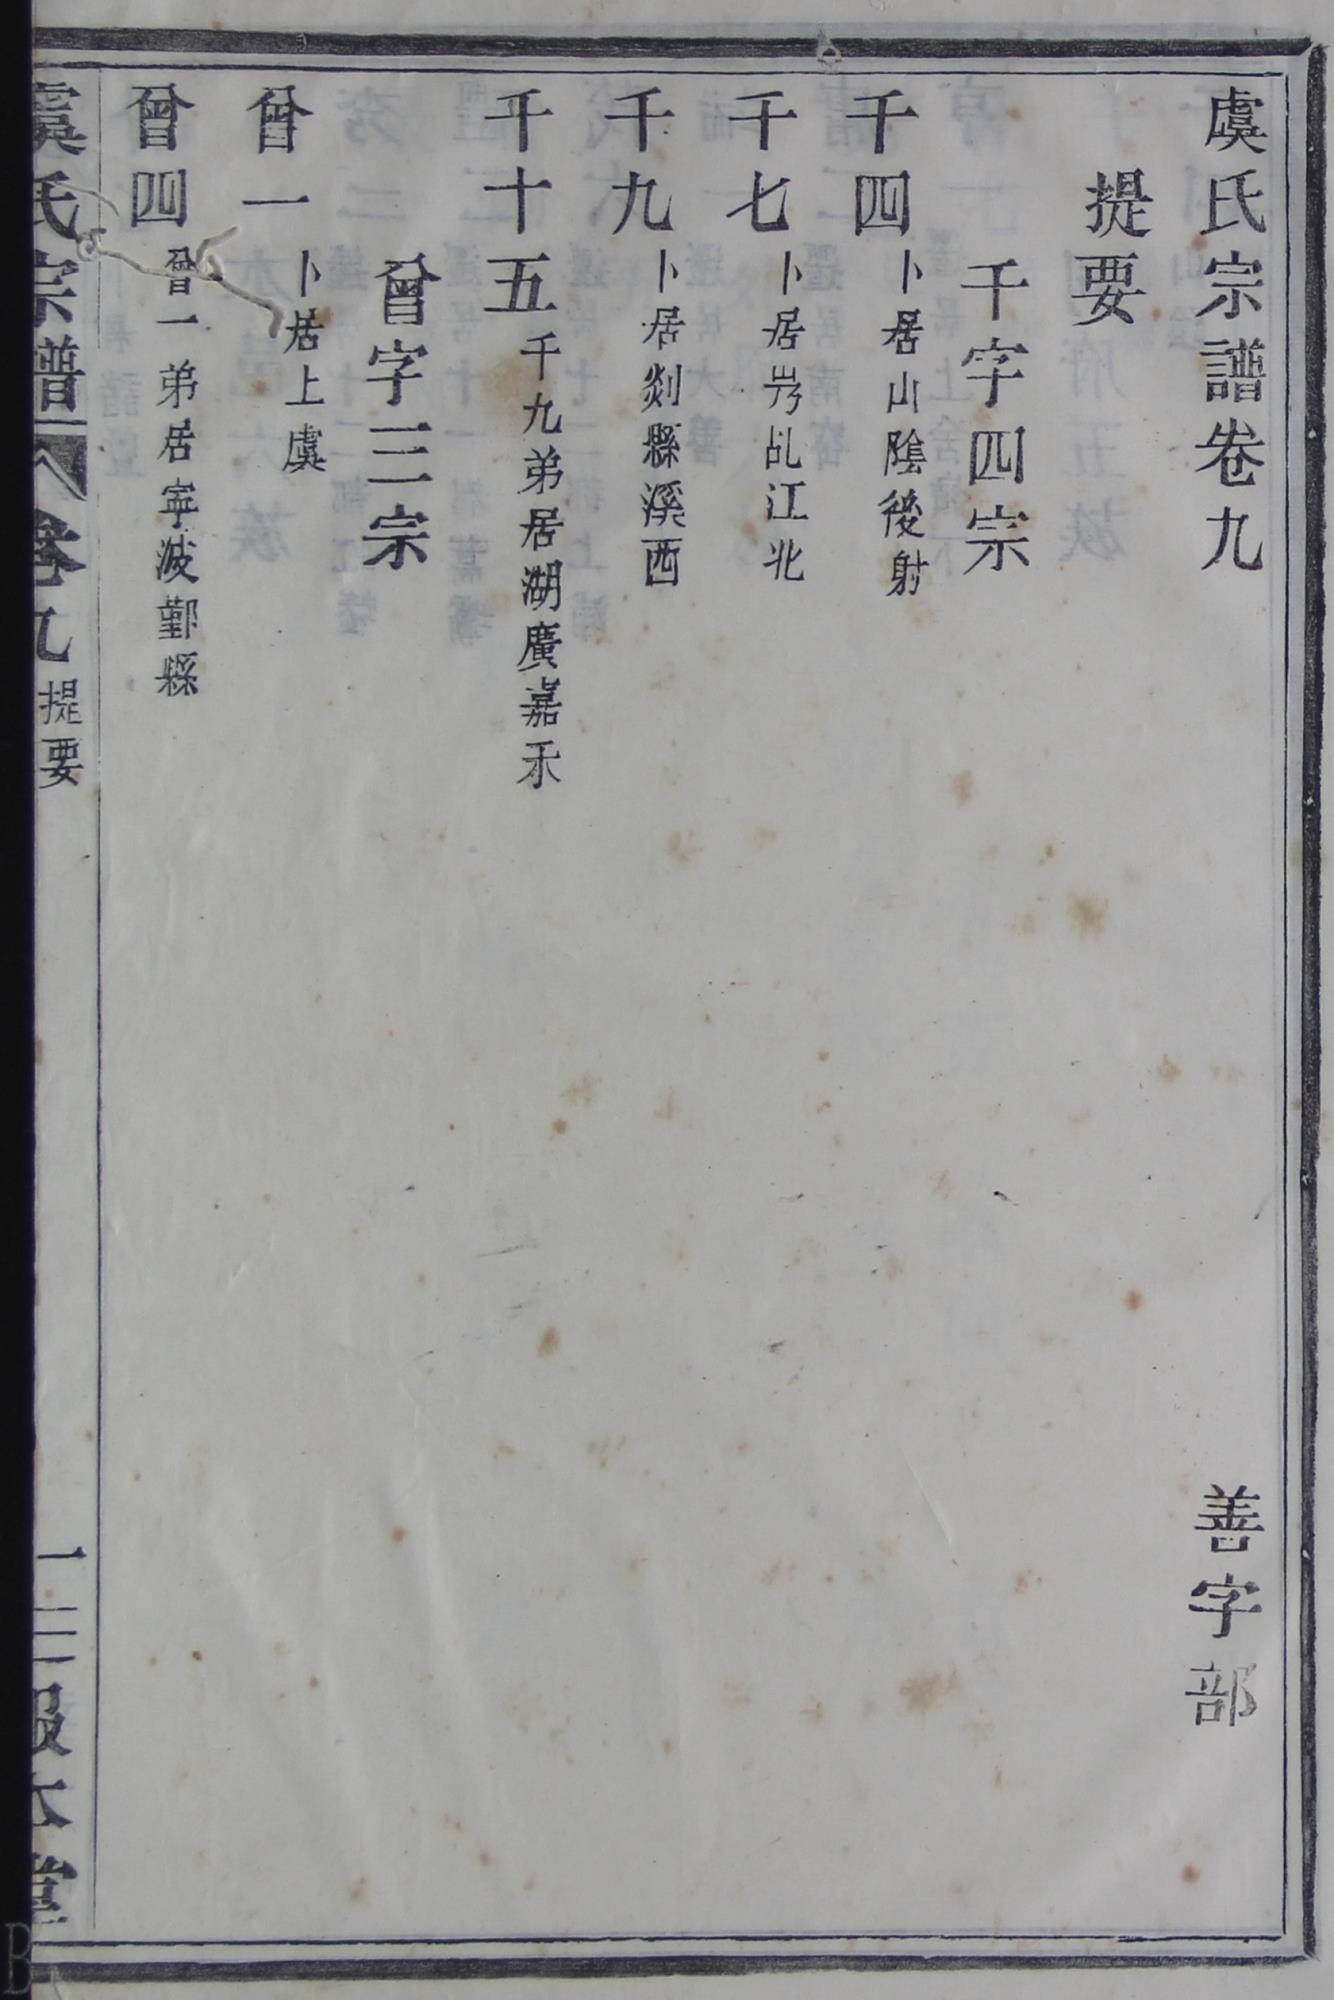 虞氏宗譜卷九 善字部
提要
千字四宗
千四 卜居山陰後射
千七 卜居岁乩江北
千九 卜居剡縣溪西
千十五 千九弟居湖廣嘉禾
曾字三宗
曾一 卜居上虞
曾四 曾一弟居寧波鄞縣
虞氏宗譜 卷九 提要 一 三 報本堂